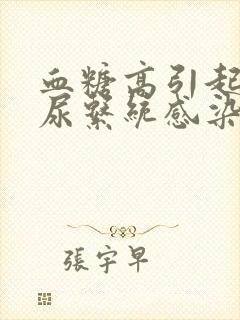 血糖高引起
尿繫統感染
張宇早